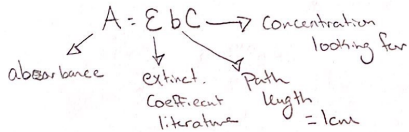 A = ε b C → Concentration
looking for
absorbance
extinct.
coefficient
literature
Path
length
= 1cm